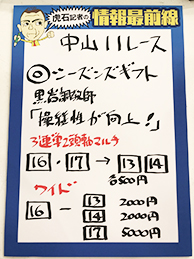 虎石記者の
情報最前線
中山11レース
◎シーズンズギフト
黒岩調教師
「操縦性が向上!」
3連単2頭軸マルチ
16・17→13 14
各500円
ワイド
16－13 2000円
14 2000円
17 5000円